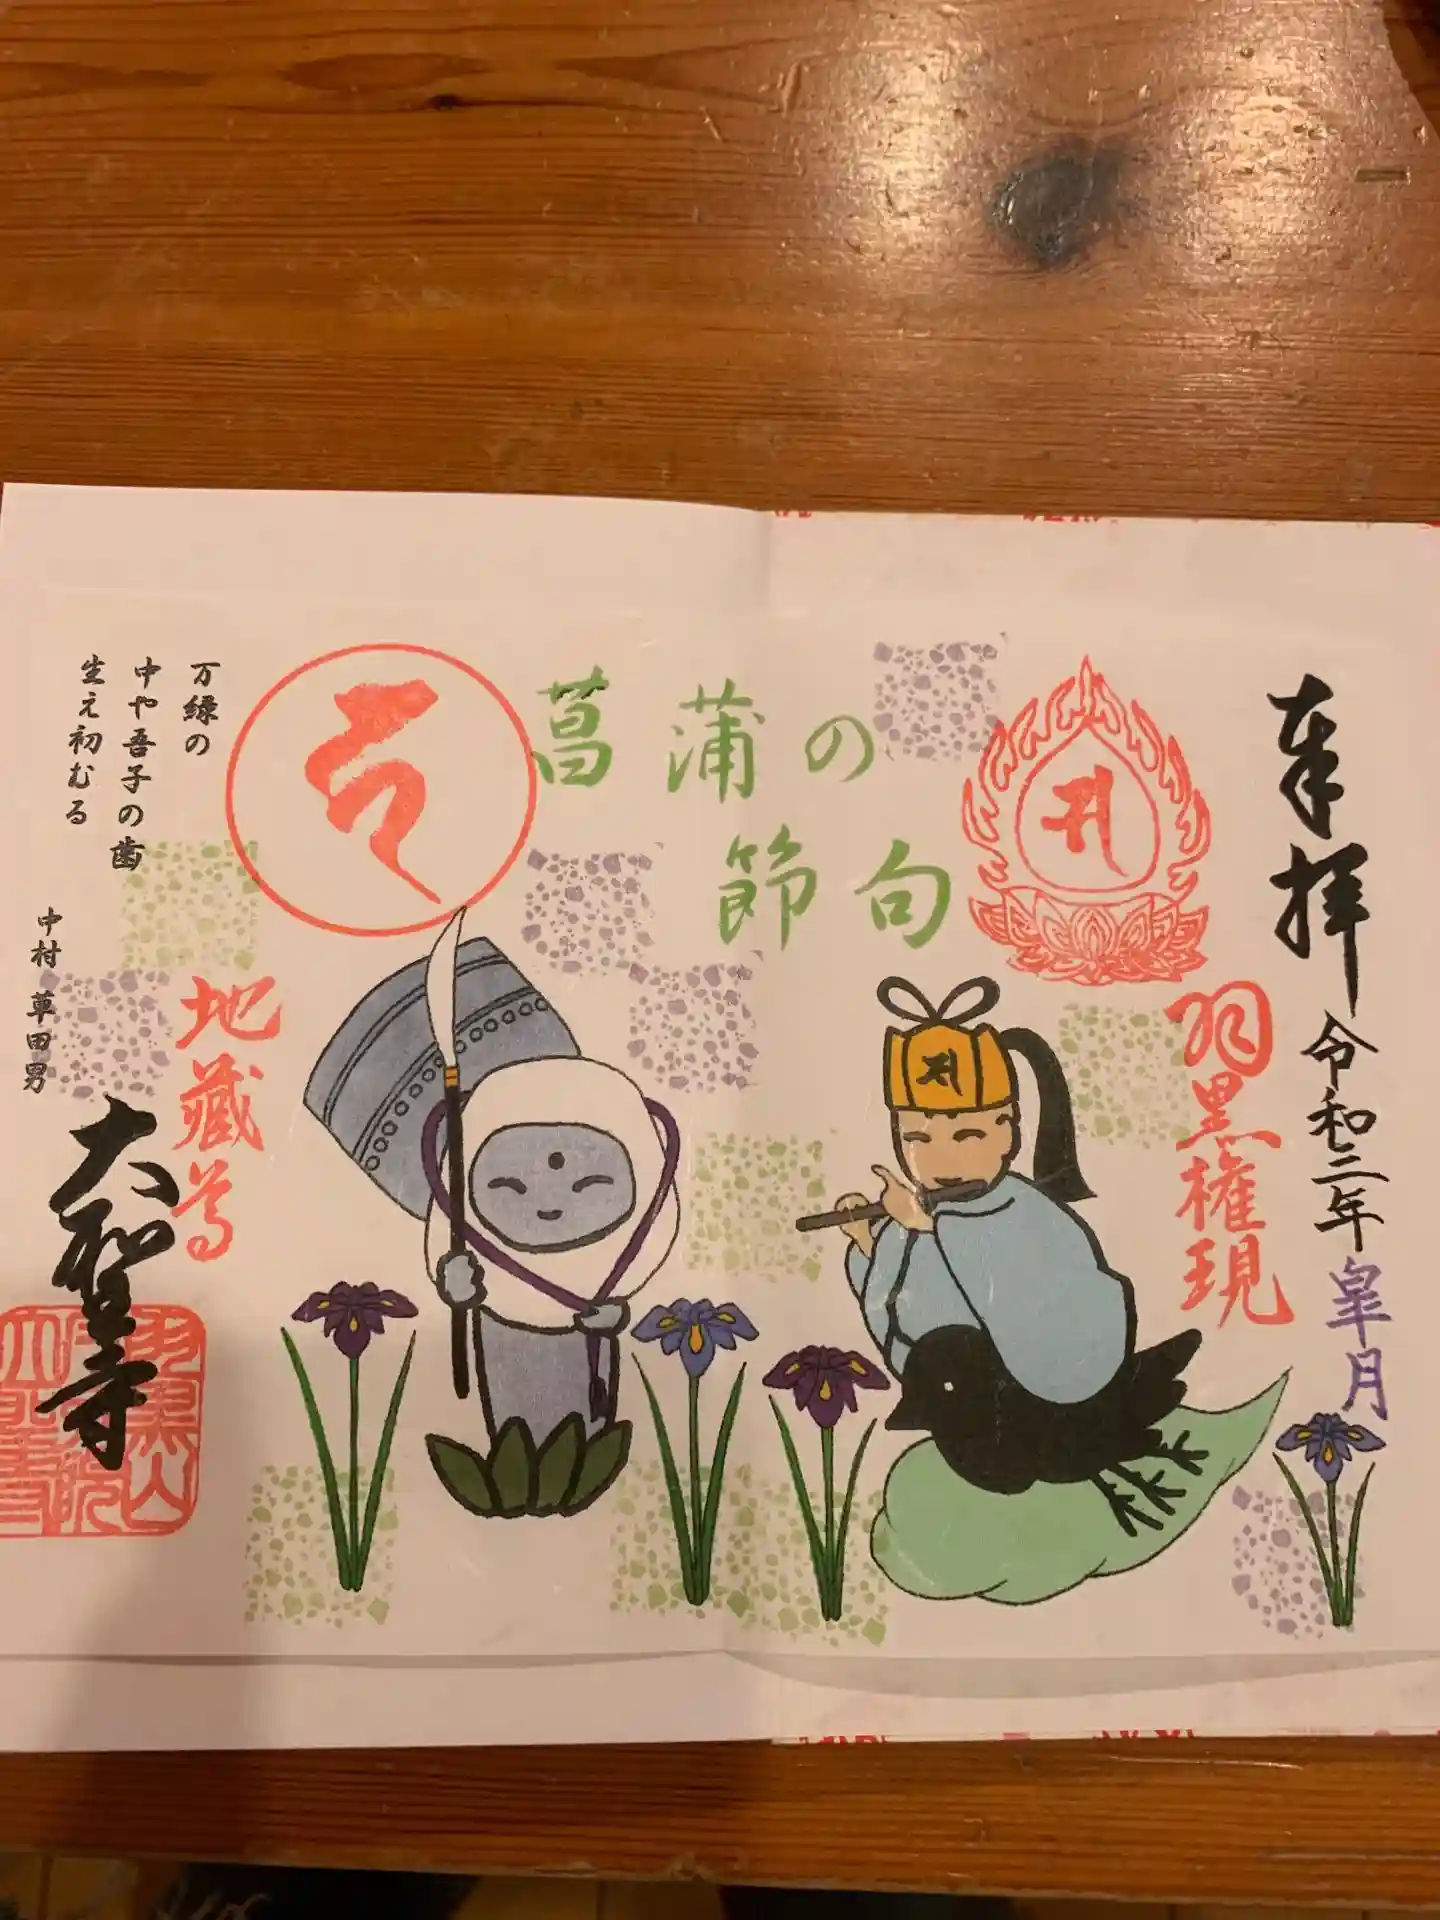 奉拝
令和二年皐月
羽黒権現
菖蒲の
節句
万緑の
中や吾子の歯
生え初むる
中村 草田男
地蔵尊
大聖寺